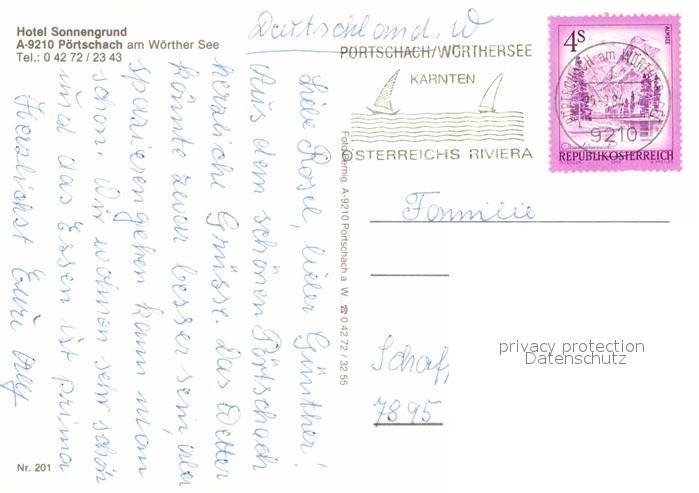 Hotel Sonnengrund
A-9210 Pörtschach am Wörther See
Tel.: 0 42 72 / 23 43
Liebe Rosel, lieber Günther!
Aus dem schönen Pörtschach
herzliche Grüsse. Das Wetter
könnte zwar besser sein, aber
spazierengehen kann man
schon. Wir wohnen sehr schön
und das Essen ist prima
Herzlichst Eure
Nr. 201
A-9210 Pörtschach a. W. ☎ 0 42 72 / 32 55
PÖRTSCHACH/WÖRTHERSEE
KÄRNTEN
ÖSTERREICHS RIVIERA
4S
ALMSEE
9210
REPUBLIK ÖSTERREICH
Familie
privacy protection
Datenschutz
7895